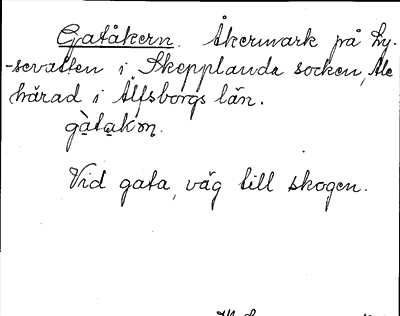 Gatåkern. Åkermark på Ly-
-sevatten i Skepplanda socken, Ale
härad i Älfsborgs län.
gàtakn̥.
Vid gata, väg till skogen.